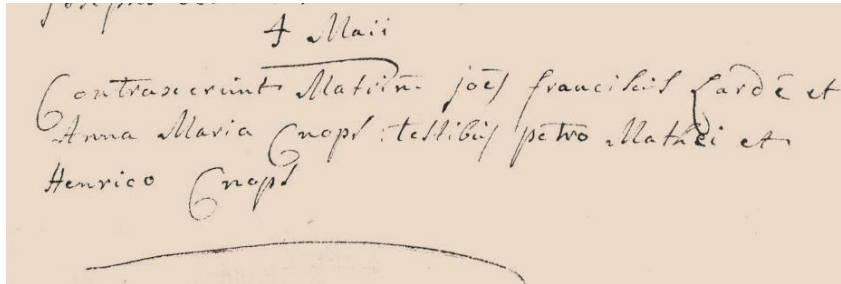 4 Maii
Contraxerunt Matrim. joēs franciscus Lardē et
Anna Maria Cnops : testibus petro Mathei et
Henrico Cnops